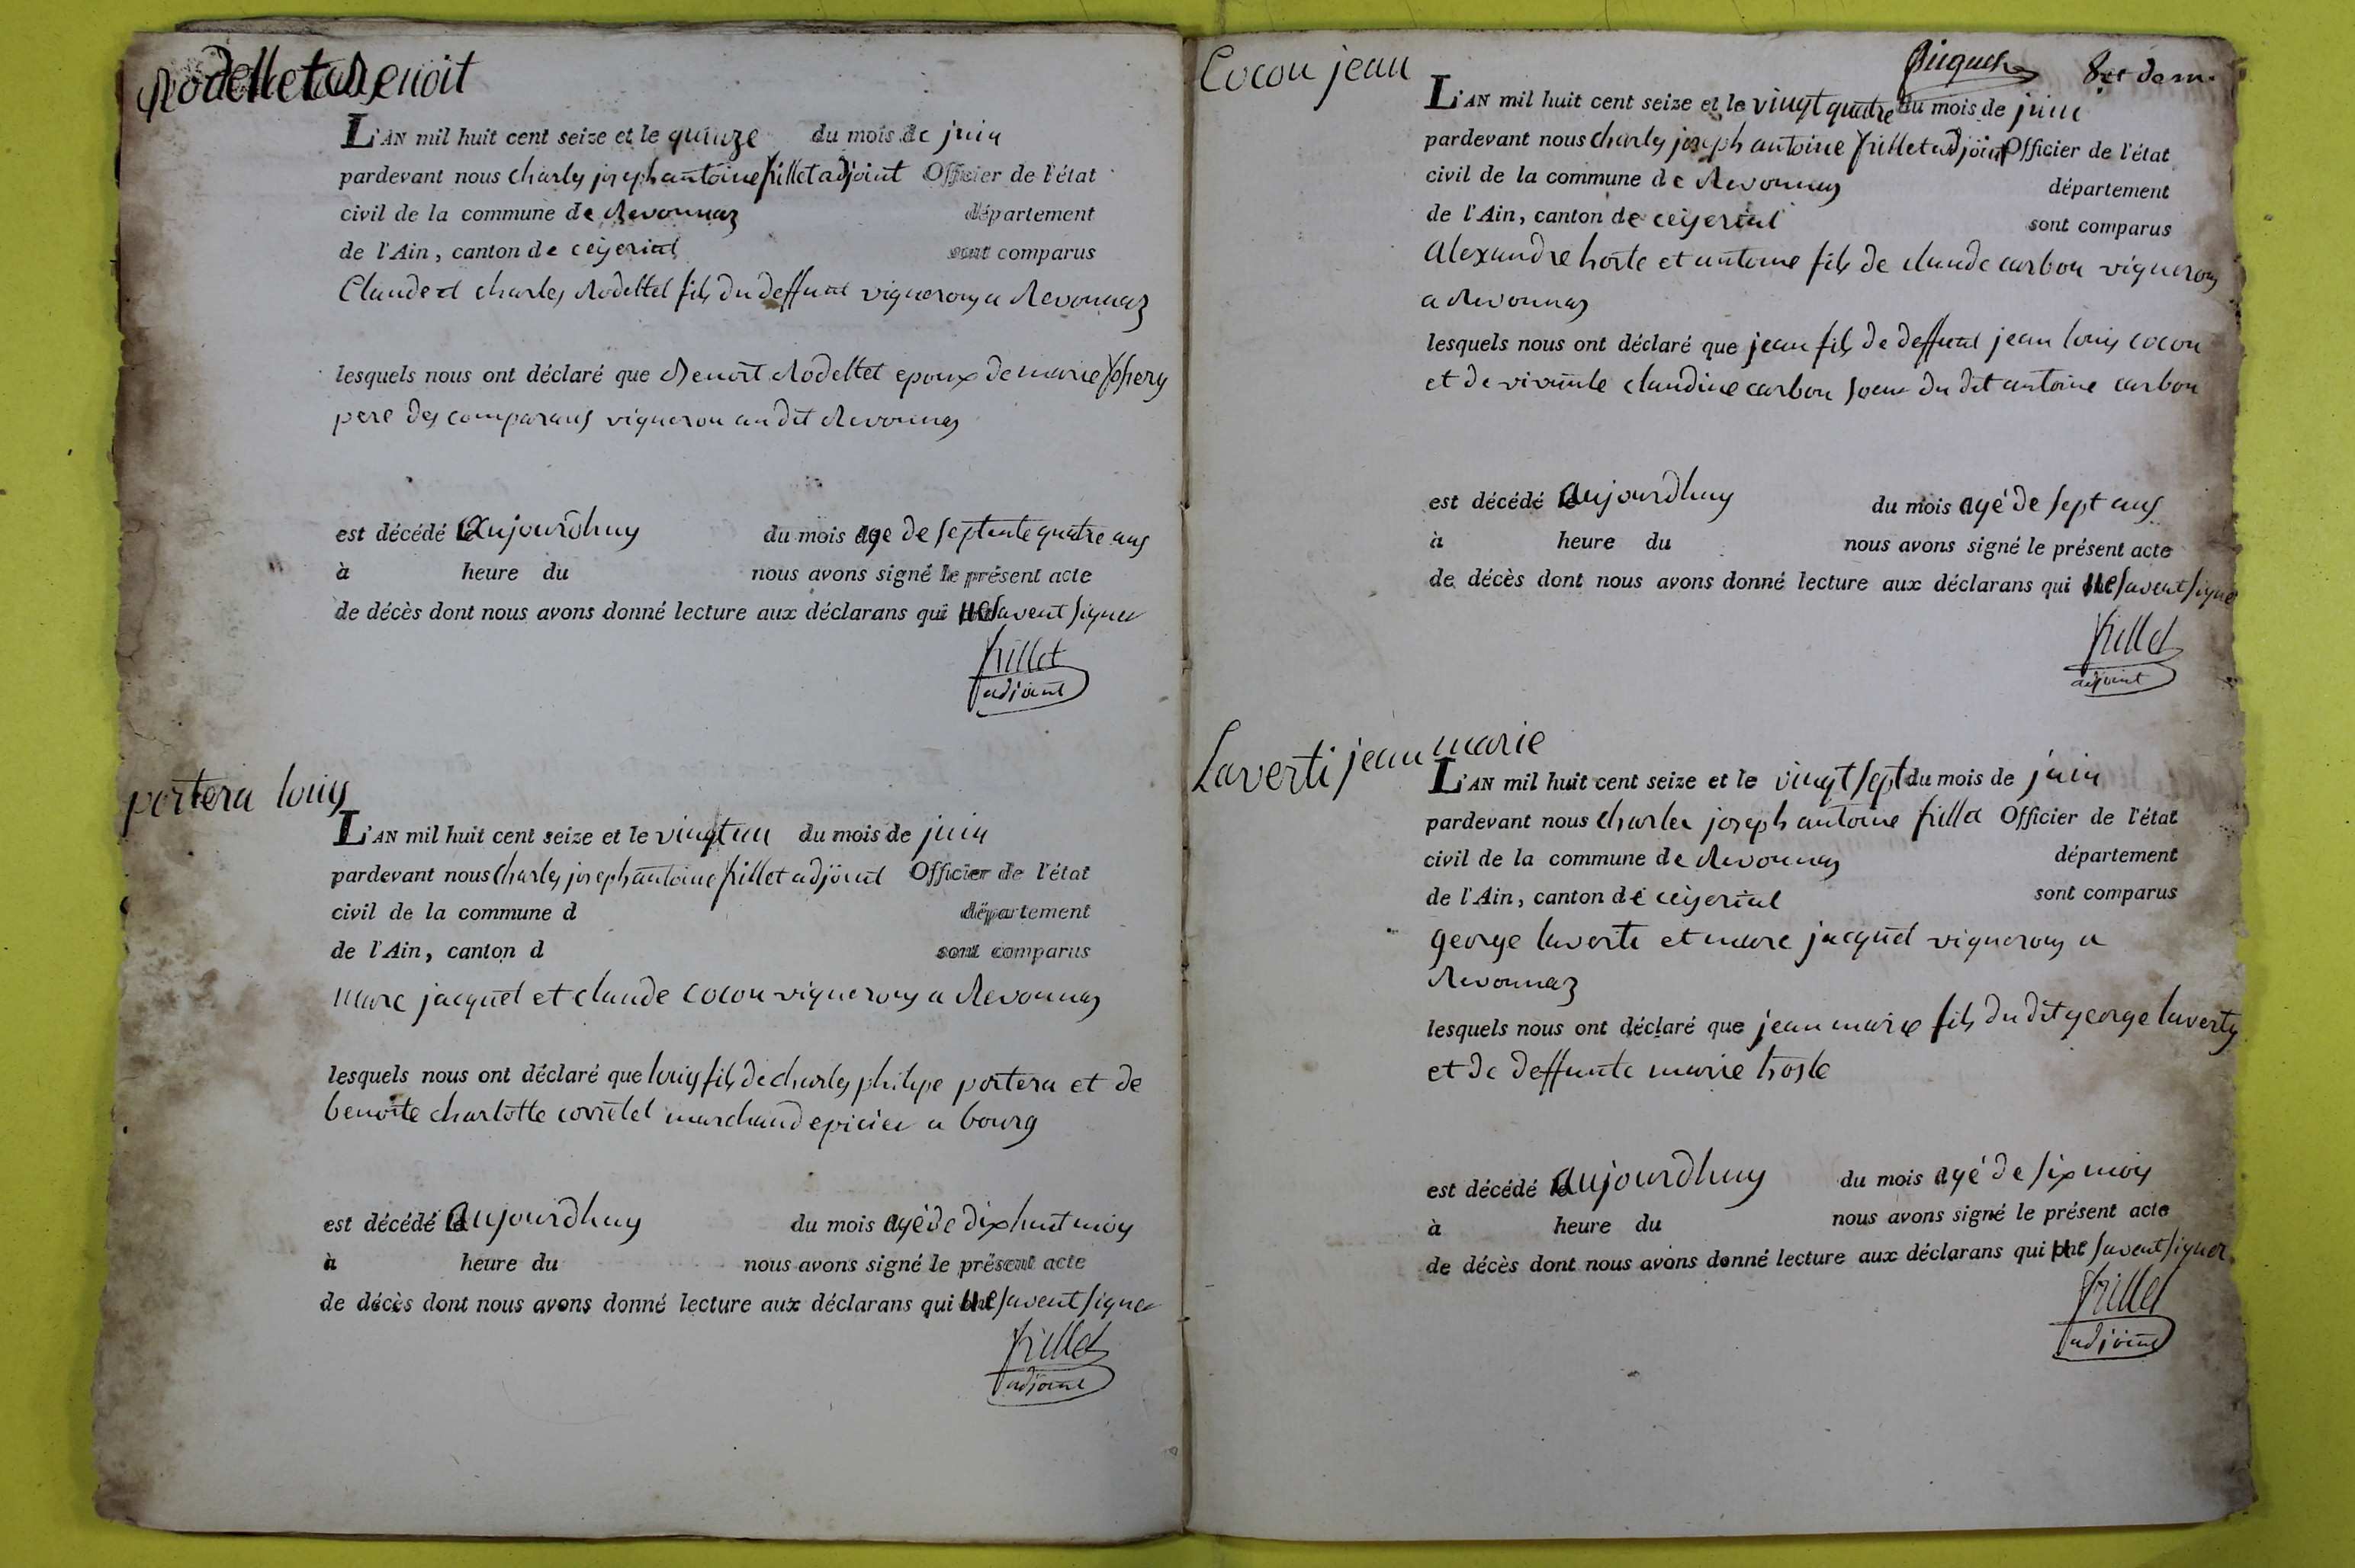 Rodettet Benoit
L'AN mil huit cent seize et le quinze du mois de juin
pardevant nous charles joseph antoine frillet adjoint Officier de l'état
civil de la commune de Revonnaz département
de l'Ain, canton de ceyeriat sont comparus
Claude et charles Rodettet fils du deffunt vignerons a Revonnaz
lesquels nous ont déclaré que Benoit Rodettet epoux de marie
pere des comparans vigneron au dit Revonnas
est décédé le aujourdhuy du mois agé de septante quatre ans
à heure du nous avons signé le présent acte
de décès dont nous avons donné lecture aux déclarans qui ne savent signer
frillet
adjoint
portera louis
L'AN mil huit cent seize et le vingt un du mois de juin
pardevant nous charles joseph antoine frillet adjoint Officier de l'état
civil de la commune d département
de l'Ain, canton d sont comparus
marc jacquet et claude cocon vignerons a Revonnas
lesquels nous ont déclaré que louis fils de charles philipe portera et de
benoite charlotte marchand epicier a bourg
est décédé le aujourdhuy du mois agé de dix huit mois
à heure du nous avons signé le présent acte
de décès dont nous avons donné lecture aux déclarans qui ne savent signer
frillet
adjoint
8
Cocon jean
L'AN mil huit cent seize et le vingt quatre du mois de juin
pardevant nous charles joseph antoine frillet adjoint Officier de l'état
civil de la commune de Revonnas département
de l'Ain, canton de ceyeriat sont comparus
alexandre hoste et antoine fils de claude carbon vignerons
a Revonnas
lesquels nous ont déclaré que jean fils de deffunt jean louis cocon
et de vivante claudine carbon soeur du dit antoine carbon
est décédé le aujourdhuy du mois agé de sept ans
à heure du nous avons signé le présent acte
de décès dont nous avons donné lecture aux déclarans qui ne savent signé
frillet
adjoint
Laverti jean marie
L'AN mil huit cent seize et le vingt sept du mois de juin
pardevant nous charles joseph antoine frillet Officier de l'état
civil de la commune de Revonnas département
de l'Ain, canton de ceyeriat sont comparus
george laverti et marc jacquet vignerons a
Revonnaz
lesquels nous ont déclaré que jean marie fils du dit george laverty
et de deffunte marie hoste
est décédé le aujourdhuy du mois agé de six mois
à heure du nous avons signé le présent acte
de décès dont nous avons donné lecture aux déclarans qui ne savent signer
frillet
adjoint